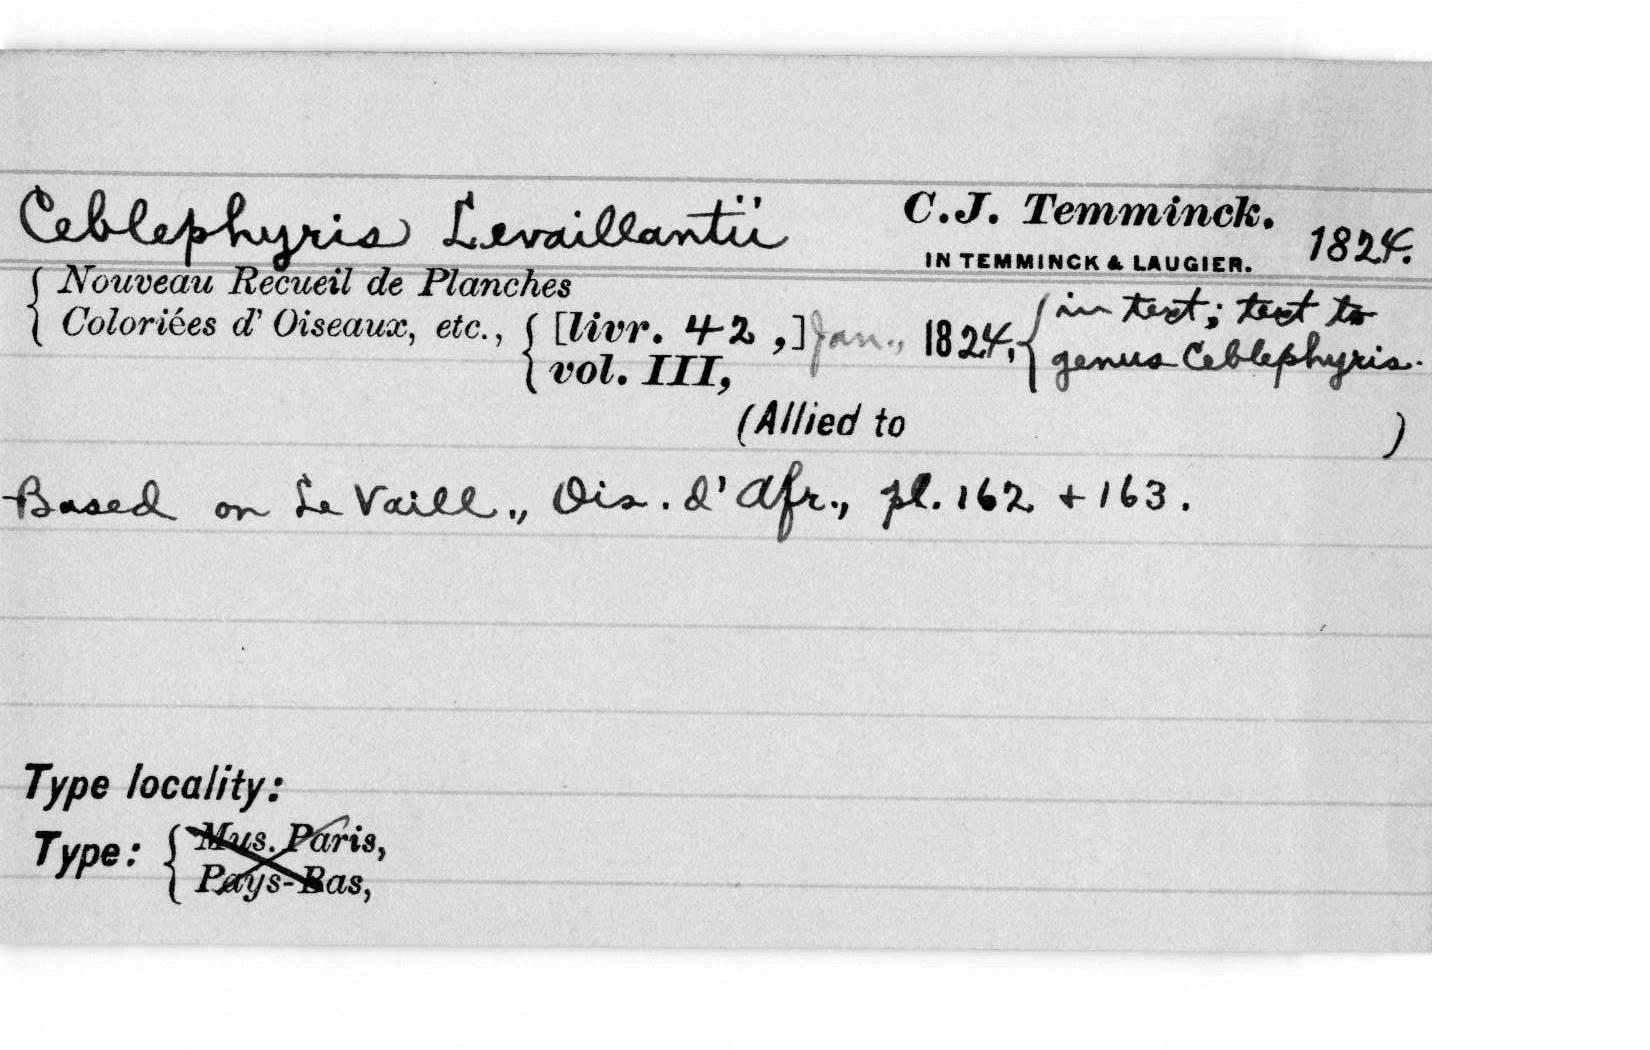 Ceblephyris Levaillantii C.J. Temminck. 1824.
IN TEMMINCK & LAUGIER.
Nouveau Recueil de Planches
Coloriées d' Oiseaux, etc., [livr. 42 ,] Jan., 1824, in text; text to
vol. III, genus Ceblephyris.
(Allied to )
Based on Le Vaill., Ois. d' Afr., pl. 162 + 163.
Type locality:
Type: Mus. Paris,
Pays-Bas,